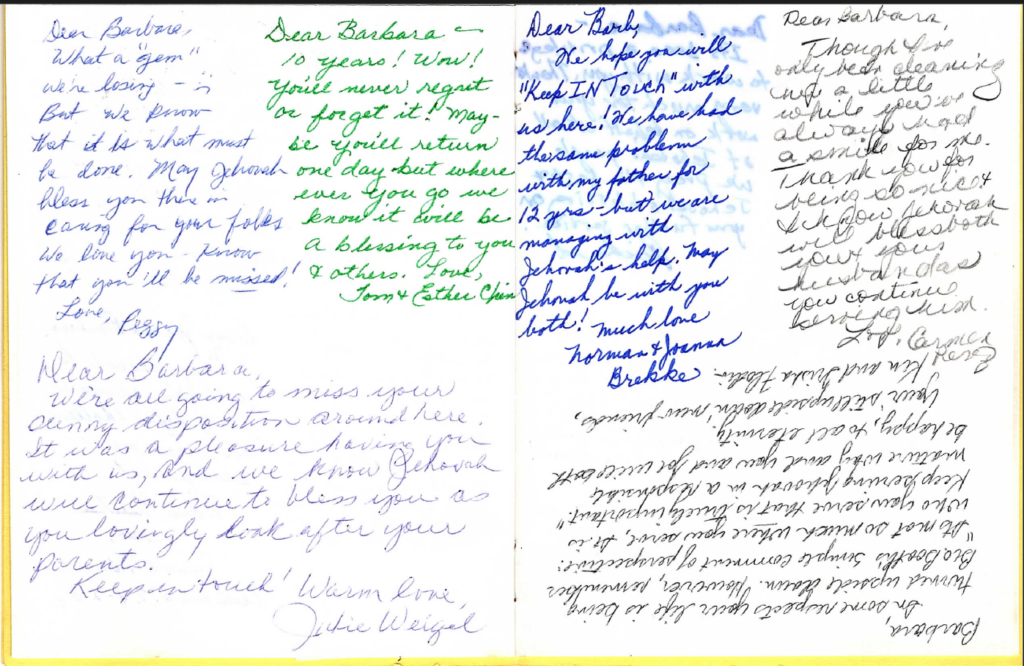 Dear Barbara,
What a "gem"
we're losing -
But we know
that it is what must
be done. May Jehovah
bless you there in
caring for your folks
We love you - know
that you'll be missed!
Love,
Peggy
Dear Barbara -
10 years! Wow!
You'll never regret
or forget it! May-
be you'll return
one day-but where
ever you go we
know it will be
a blessing to you
& others. Love,
Tom & Esther Chin
Dear Barbara,
We're all going to miss your
sunny disposition around here.
It was a pleasure having you
with us, and we know Jehovah
will continue to bless you as
you lovingly look after your
parents.
Keep in touch! Warm love,
Julie Weigel
Dear Barb,
We hope you will
"Keep IN Touch" with
us here! We have had
the same problem
with my father for
12 yrs - but we are
managing with
Jehovah's help. May
Jehovah be with you
both! Much love
Norman & Joanna
Brekke
Dear Barbara,
Though I've
only been cleaning
a little
while you've
always had
a smile for me.
Thank you for
being so nice &
I know Jehovah
will bless both
you & your
husband as
you continue
serving Him.
Love, Carmen
Barbara,
In some respects your life is being
turned upside down. However, remember
Bro Booth's simple comment of perspective:
"Its not so much where you serve, it is
who you serve that is truely important."
Keep serving Jehovah in a responsible
mature way and you and Joe will both
be happy, to all eternity
Your still upside down, new friends,
Ken and